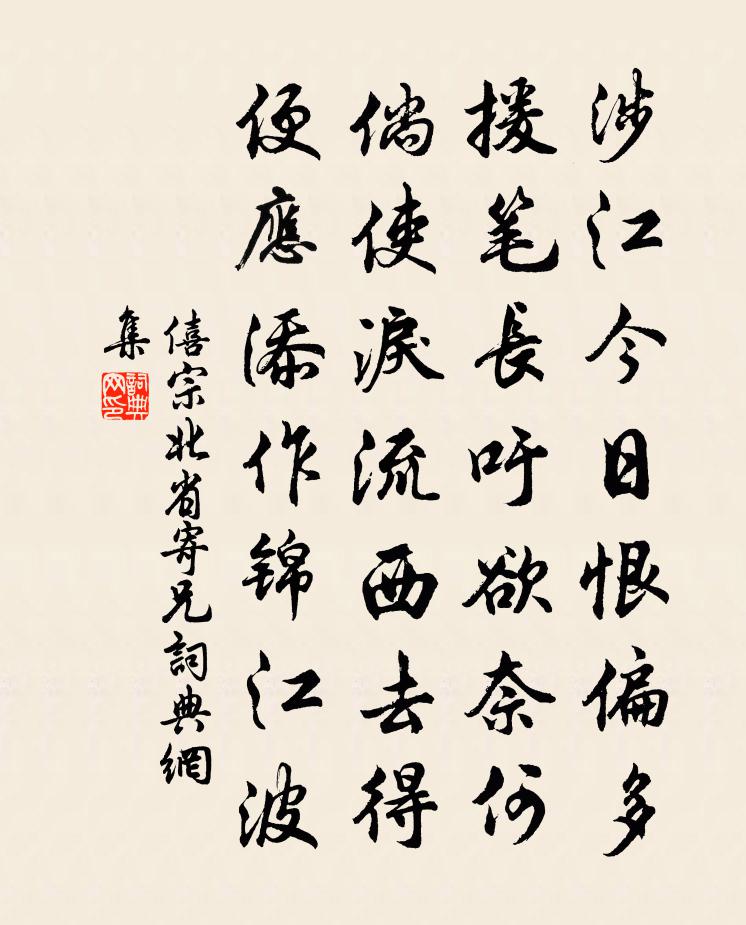 涉江今日恨偏多
援笔長吁欲奈何
倘使淚流西去得
便應添作錦江波
僖宗北省寄兄詞典網
集
詞典网印